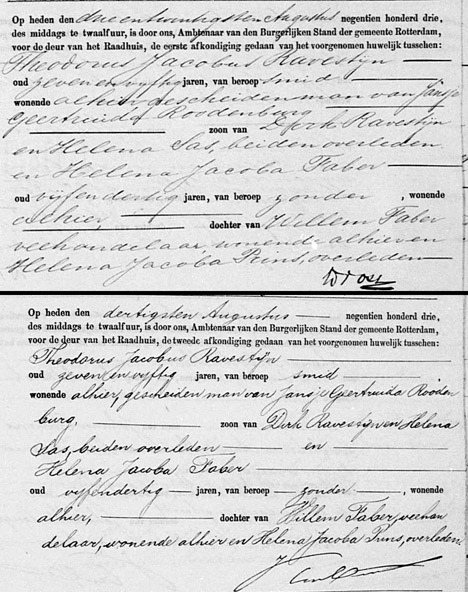 Op heden den drie en twintigsten Augustus negentien honderd drie,
des middags te twaalf uur, is door ons, Ambtenaar van den Burgerlijken Stand der gemeente Rotterdam,
voor de deur van het Raadhuis, de eerste afkondiging gedaan van het voorgenomen huwelijk tusschen:
Theodorus Jacobus Ravestijn
oud zeven en vijftig jaren, van beroep smid
wonende alhier, gescheiden man van Jansje
Geertruida Roodenburg
zoon van Dirk Ravestijn
en Helena Sas, beiden overleden
en Helena Jacoba Faber
oud vijfendertig jaren, van beroep zonder, wonende
alhier, dochter van Willem Faber
veehandelaar, wonende alhier en
Helena Jacoba Prins, overleden
Op heden den dertigsten Augustus negentien honderd drie,
des middags te twaalf uur, is door ons, Ambtenaar van den Burgerlijken Stand der gemeente Rotterdam,
voor de deur van het Raadhuis, de tweede afkondiging gedaan van het voorgenomen huwelijk tusschen:
Theodorus Jacobus Ravestijn
oud zeven en vijftig jaren, van beroep smid
wonende alhier, gescheiden man van Jansje Geertruida Rooden
burg, zoon van Dirk Ravestijn en Helena
Sas, beiden overleden en
Helena Jacoba Faber
oud vijfendertig jaren, van beroep zonder, wonende
alhier, dochter van Willem Faber, veehan
delaar, wonende alhier en Helena Jacoba Prins, overleden